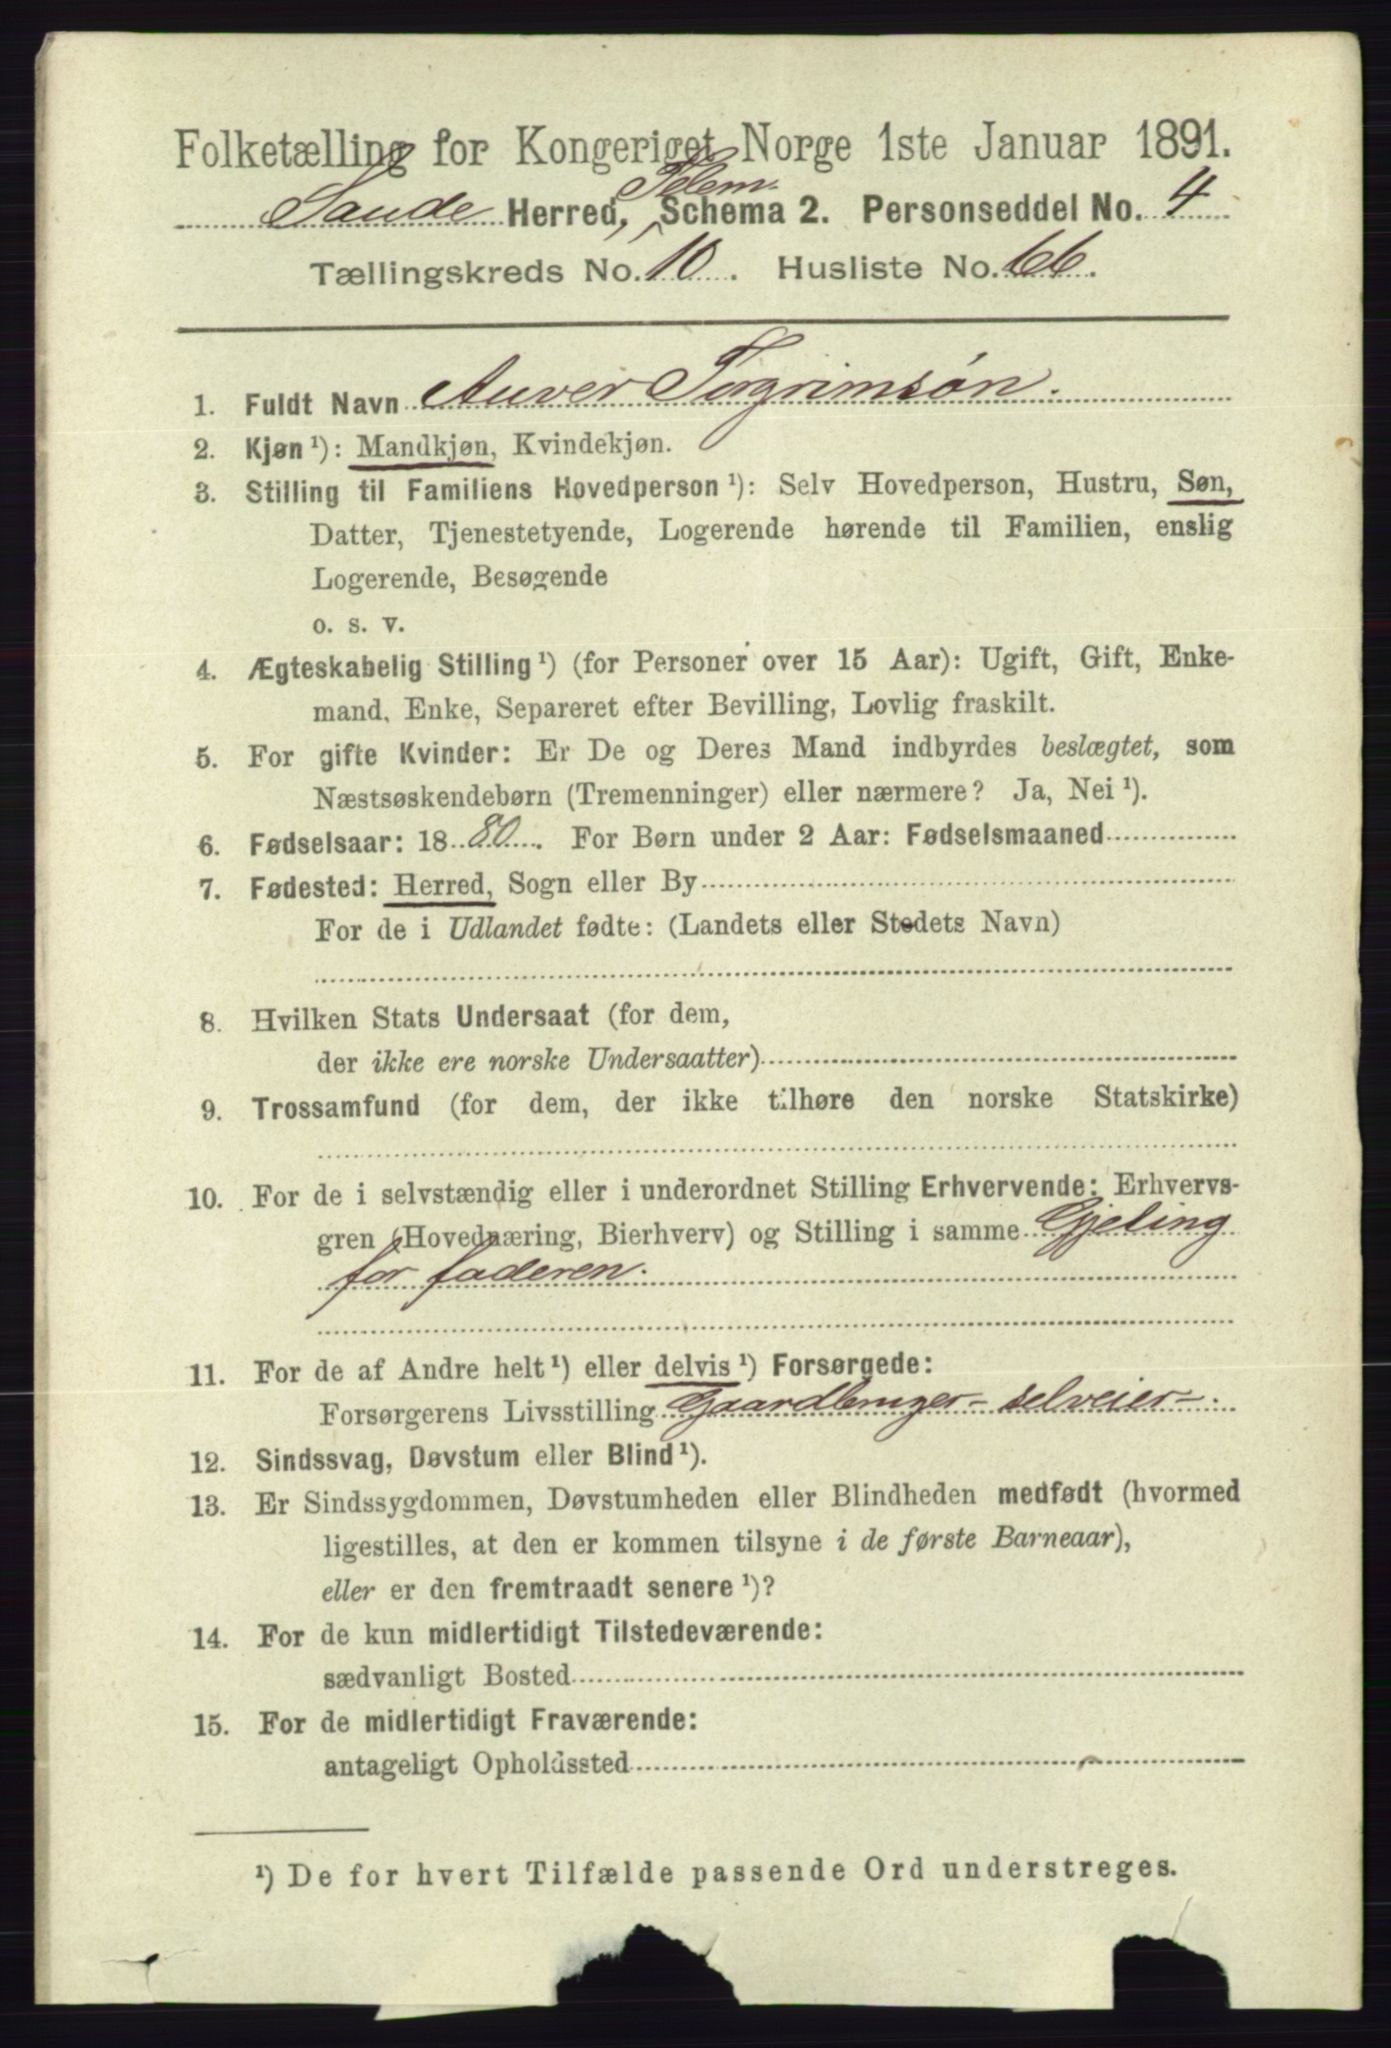 Folketælling for Kongeriget Norge 1ste Januar 1891.
Telem.
Saude Herred, Schema 2. Personseddel No. 4
Tællingskreds No. 10. Husliste No. 66.
1. Fuldt Navn Auver Torgrimsøn.
2. Kjøn ¹): Mandkjøn, Kvindekjøn.
3. Stilling til Familiens Hovedperson ¹): Selv Hovedperson, Hustru, Søn,
Datter, Tjenestetyende, Logerende hørende til Familien, enslig
Logerende, Besøgende
o. s. v.
4. Ægteskabelig Stilling ¹) (for Personer over 15 Aar): Ugift, Gift, Enke-
mand, Enke, Separeret efter Bevilling, Lovlig fraskilt.
5. For gifte Kvinder: Er De og Deres Mand indbyrdes beslægtet, som
Næstsøskendebørn (Tremenninger) eller nærmere? Ja, Nei ¹).
6. Fødselsaar: 1880. For Børn under 2 Aar: Fødselsmaaned
7. Fødested: Herred, Sogn eller By
For de i Udlandet fødte: (Landets eller Stedets Navn)
8. Hvilken Stats Undersaat (for dem,
der ikke ere norske Undersaatter)
9. Trossamfund (for dem, der ikke tilhøre den norske Statskirke)
10. For de i selvstændig eller i underordnet Stilling Erhvervende: Erhvervs-
gren (Hovednæring, Bierhverv) og Stilling i samme Gjeting
for faderen.
11. For de af Andre helt ¹) eller delvis ¹) Forsørgede:
Forsørgerens Livsstilling Gaardbruger - selveier -
12. Sindssvag, Døvstum eller Blind ¹).
13. Er Sindssygdommen, Døvstumheden eller Blindheden medfødt (hvormed
ligestilles, at den er kommen tilsyne i de første Barneaar),
eller er den fremtraadt senere ¹)?
14. For de kun midlertidigt Tilstedeværende:
sædvanligt Bosted
15. For de midlertidigt Fraværende:
antageligt Opholdssted
¹) De for hvert Tilfælde passende Ord understreges.